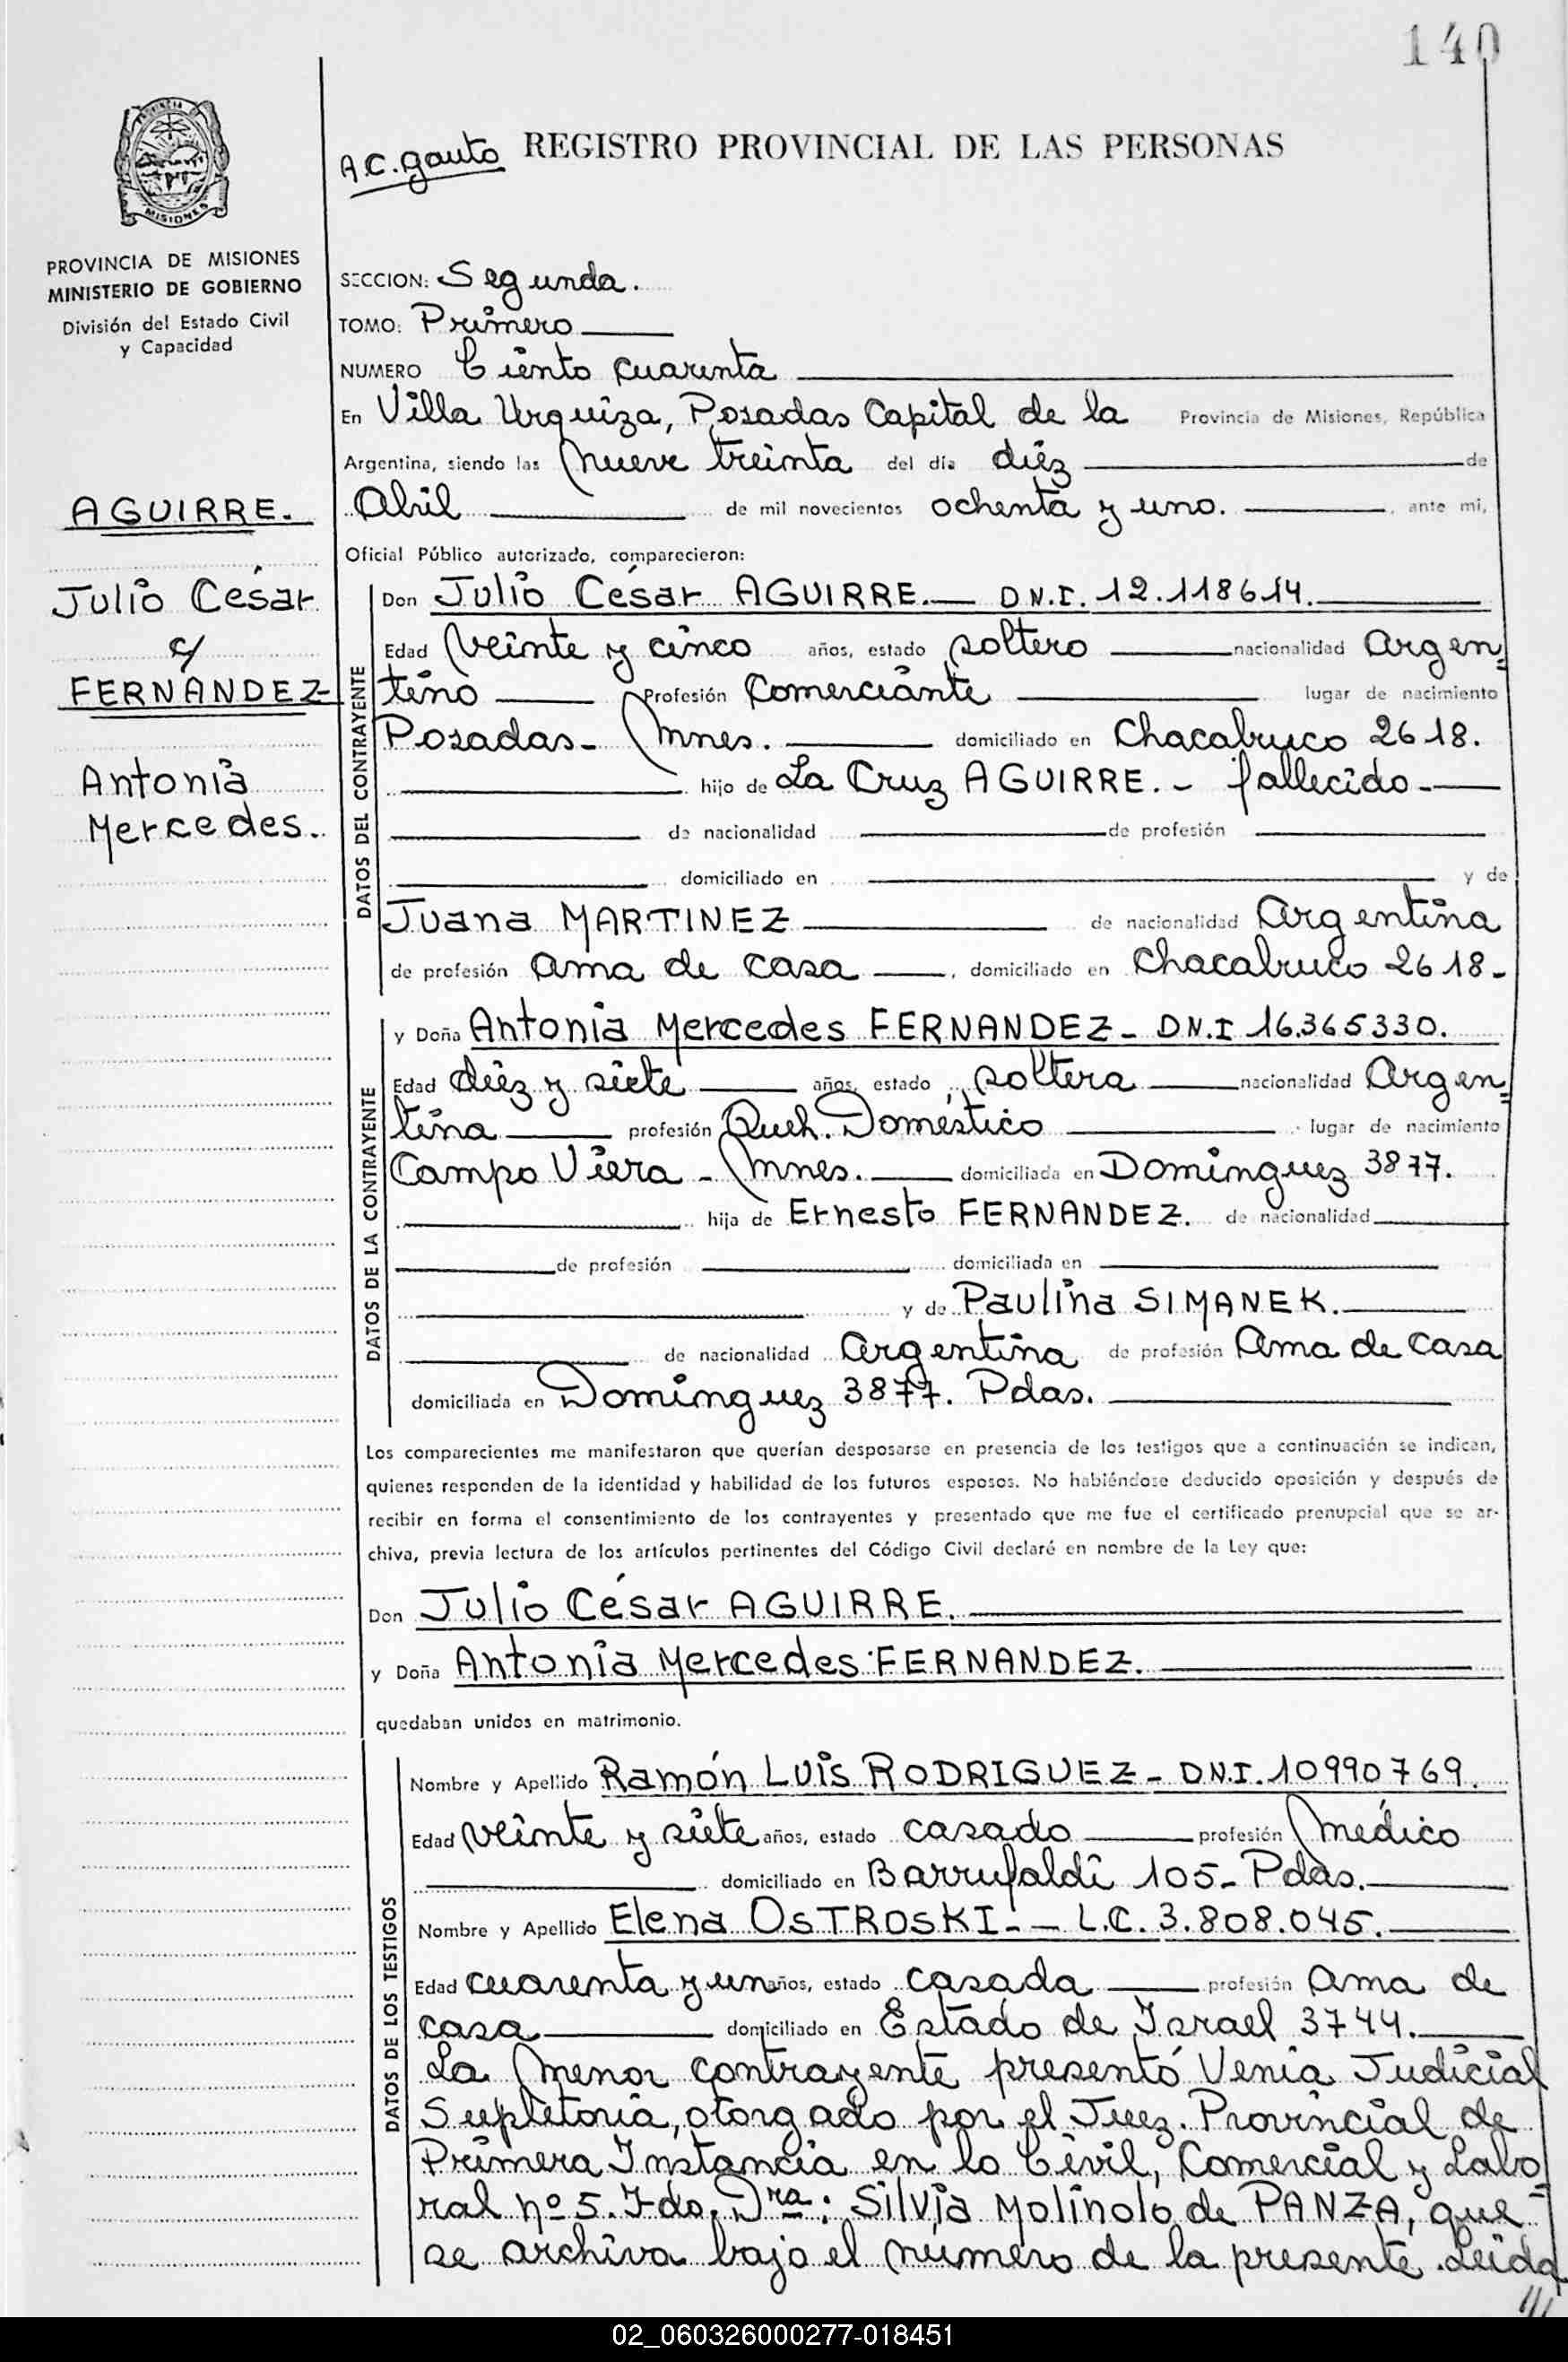 140
PROVINCIA DE MISIONES
MISIONES
PROVINCIA DE MISIONES
MINISTERIO DE GOBIERNO
División del Estado Civil
y Capacidad
AGUIRRE.
Julio César
c/
FERNANDEZ
Antonia
Mercedes.
A.C. Gauto REGISTRO PROVINCIAL DE LAS PERSONAS
SECCION: Segunda.
TOMO: Primero
NUMERO Ciento cuarenta
En Villa Urquiza, Posadas Capital de la Provincia de Misiones, República
Argentina, siendo las nueve treinta del día diéz de
Abril de mil novecientos ochenta y uno. , ante mi,
Oficial Público autorizado, comparecieron:
DATOS DEL CONTRAYENTE
Don Julio César AGUIRRE.— D.N.I. 12.118614.
Edad veinte y cinco años, estado soltero nacionalidad Argen=
tino Profesión Comerciante lugar de nacimiento
Posadas- Mnes. domiciliado en Chacabuco 2618.
hijo de La Cruz AGUIRRE.- fallecido-
de nacionalidad de profesión
domiciliado en y de
Juana MARTINEZ de nacionalidad Argentina
de profesión Ama de casa , domiciliado en Chacabuco 2618-
DATOS DE LA CONTRAYENTE
y Doña Antonia Mercedes FERNANDEZ- D.N.I 16.365330.
Edad diéz y siete años, estado soltera nacionalidad Argen=
tina profesión Queh. Doméstico lugar de nacimiento
Campo Viera - Mnes. domiciliada en Dominguez 3877.
hija de Ernesto FERNANDEZ. de nacionalidad
de profesión domiciliada en
y de Paulina SIMANEK.
de nacionalidad Argentina de profesión Ama de casa
domiciliada en Dominguez 3877. Pdas.
Los comparecientes me manifestaron que querían desposarse en presencia de los testigos que a continuación se indican,
quienes responden de la identidad y habilidad de los futuros esposos. No habiéndose deducido oposición y después de
recibir en forma el consentimiento de los contrayentes y presentado que me fue el certificado prenupcial que se ar-
chiva, previa lectura de los artículos pertinentes del Código Civil declaré en nombre de la Ley que:
Don Julio César AGUIRRE.
y Doña Antonia Mercedes FERNANDEZ.
quedaban unidos en matrimonio.
DATOS DE LOS TESTIGOS
Nombre y Apellido Ramón Luis RODRIGUEZ- D.N.I. 10990769.
Edad veinte y siete años, estado casado profesión Médico
domiciliado en Barrufaldi 105- Pdas.
Nombre y Apellido Elena OSTROSKI.- L.C. 3.808.045.
Edad cuarenta y un años, estado casada profesión Ama de
casa domiciliado en Estado de Israel 3744.
La Menor contrayente presentó Venia Judicial
Supletoria, otorgado por el Juez. Provincial de
Primera Instancia en lo Civil, Comercial y Labo=
ral nº 5. Fdo. Dra: Silvia Molinolo de PANZA, que
se archiva bajo el número de la presente. Leida
///
02_060326000277-018451